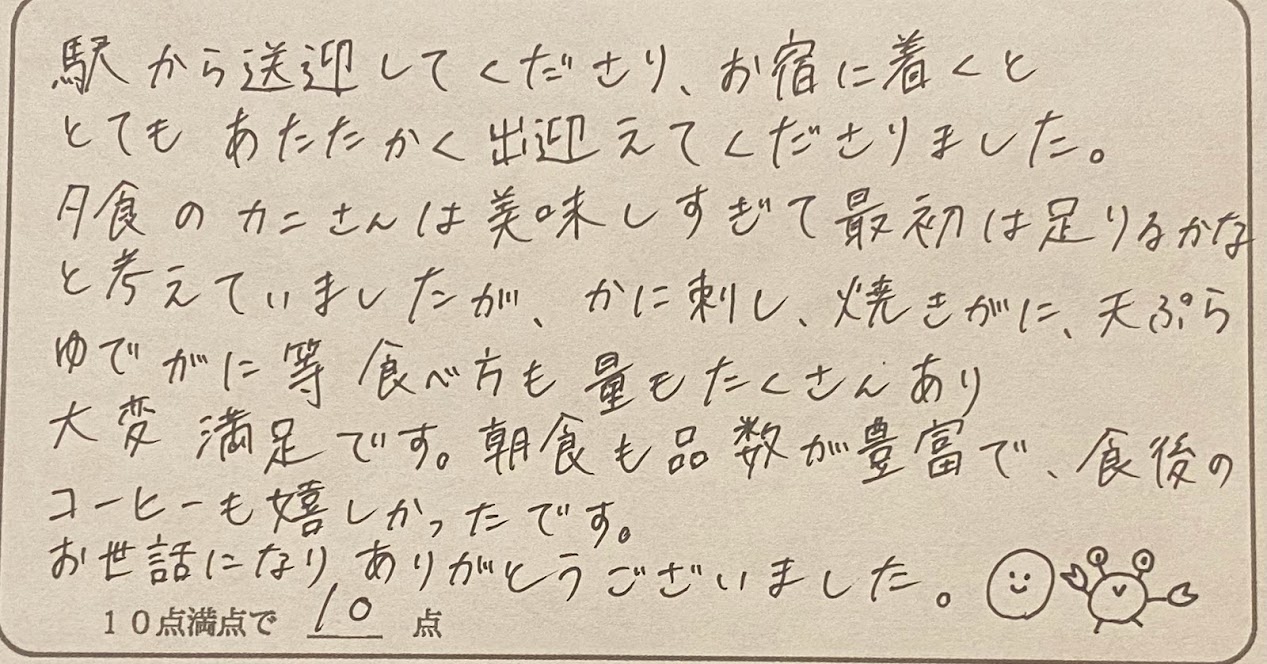 駅から送迎してくださり、お宿に着くと
とてもあたたかく出迎えてくださりました。
夕食のカニさんは美味しすぎて最初は足りるかな
と考えていましたが、かに刺し、焼きがに、天ぷら
ゆでがに等食べ方も量もたくさんあり
大変満足です。朝食も品数が豊富で、食後の
コーヒーも嬉しかったです。
お世話になりありがとうございました。
10点満点で 10 点